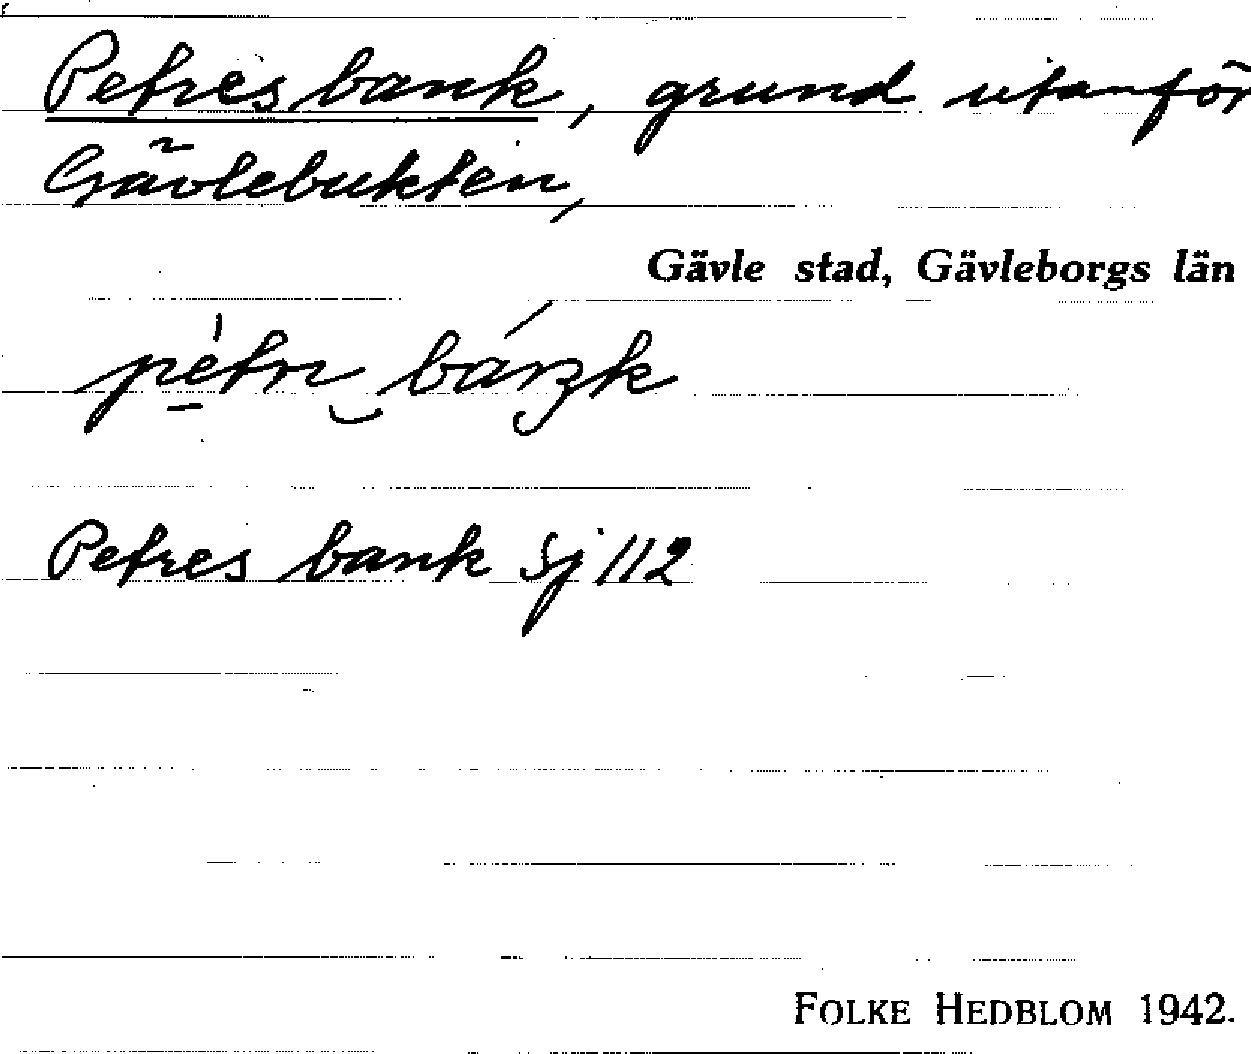 Petres bank, grund utanför
Gävlebukten,
Gävle stad, Gävleborgs län
Petres bank Sj 112
FOLKE HEDBLOM 1942.